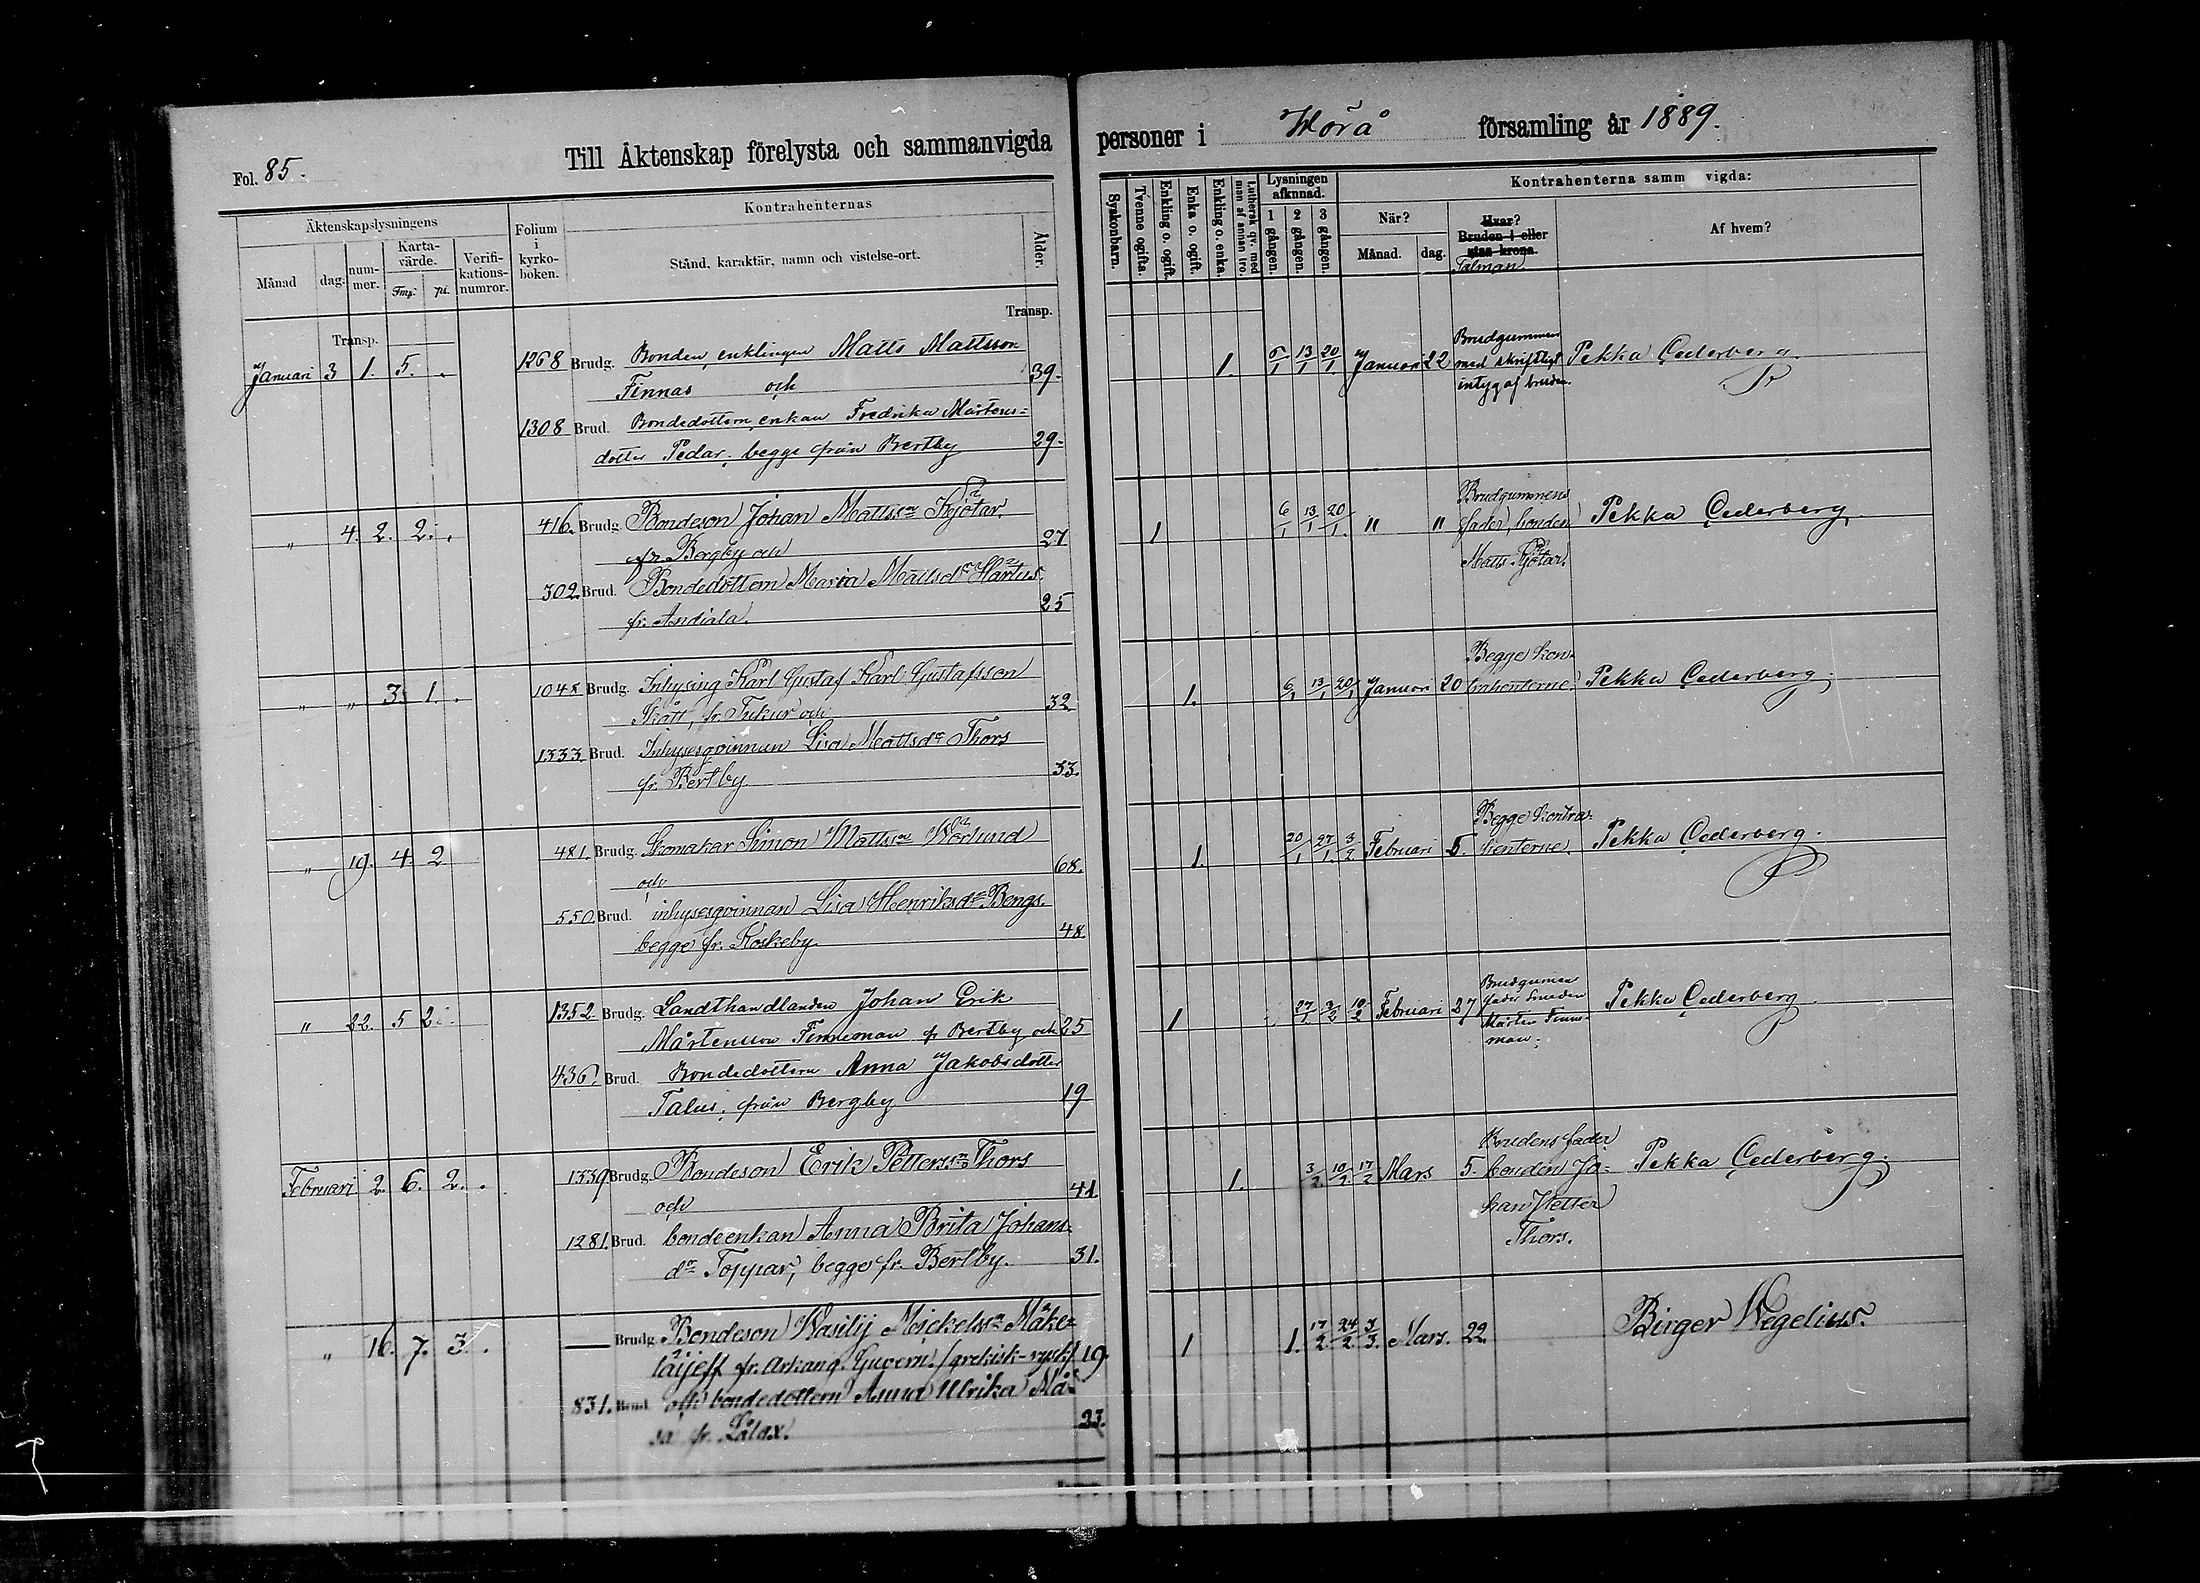 Fol. 85.
Till Äktenskap förelysta och sammanvigda
personer i Wörå församling år 1889.
Äktenskapslysningens
Månad
dag.
num-
mer.
Karta-
värde.
Fmk.
pi.
Verifi-
kations-
numror.
Folium
i
kyrko-
boken.
Kontrahenternas
Stånd, karaktär, namn och vistelse-ort.
Ålder.
Syskonbarn.
Tvenne ogifta.
Enkling o. ogift.
Enka o. ogift.
Enkling o. enka.
Luthersk qv. med
man af annan tro.
Lysningen
afkunnad.
1 gången.
2 gången.
3 gången.
Kontrahenterna samm vigda:
När?
Månad.
dag.
Hvar?
Bruden i eller
utan krona.
Talman
Af hvem?
Transp.
Transp.
Januari 3 1. 5. 1268 Brudg. Bonden, enklingen Matts Mattsson
Finnas och 39.
1308 Brud. Bondedottern, enkan Fredrika Mårtens-
dotter Pedar, begge från Bertby 29.
1. 6/1 13/1 20/1 Januari 22
Brudgummen
med skriftligt
intyg af bruden.
Pekka Cederberg
" 4. 2. 2. 416. Brudg. Bondeson Johan Mattssn Kjötar
fr Bergby och 27
302. Brud. Bondedottern Maria Mattsdr Hartus
fr. Andiala. 25
1 6/1 13/1 20/1. " "
Brudgummens
fader, bonden
Matts Kjötar.
Pekka Cederberg
" " 3. 1. 1048 Brudg. Inhysing Karl Gustaf Karl Gustafsson
Skått, fr. Tukur och 32
1333. Brud. Inhysesqvinnan Lisa Mattsdr Thors
fr. Bertby. 33.
1. 6/1 13/1 20/1 Januari 20
Begge kon-
trahenterne.
Pekka Cederberg.
" 19. 4. 2 481. Brudg. Skomakar Simon Mattssn Wörlund
och 68.
550. Brud. inhysesqvinnan Lisa Henriksdr Bengs.
begge fr. Koskeby. 48.
1. 20/1 27/1. 3/2 Februari 5.
Begge kontra-
henterne.
Pekka Cederberg.
" 22. 5 2. 1352. Brudg. Landthandlanden Johan Erik
Mårtensson Finneman fr Bertby och 25
436. Brud. Bondedottern Anna Jakobsdotter
Talus, från Bergby 19
1 27/1 3/2 10/2 Februari 27
Brudgumen
fader smeden
Mårten Finne-
man.
Pekka Cederberg.
Februari 2. 6. 2. 1339 Brudg. Bondeson Erik Petterssn Thors
och 41.
1281. Brud. bondeenkan Anna Brita Johans-
dr Toppar, begge fr. Bertby. 31.
1. 3/2 10/2 17/2 Mars 5.
Brudens fader
bonden Jo-
han Petter
Thors.
Pekka Cederberg.
" 16. 7. 3. — Brudg. Bondeson Wasilij Mickelssn Mäke-
läijeff fr. Arkang. Guvern. (grekisk-rysk) 19.
831. Brud. och bondedottern Anna Ulrika Må-
sa fr. Kålax. 23.
1 1. 17/2 24/2 3/3. Mars. 22.
Birger Wegelius.